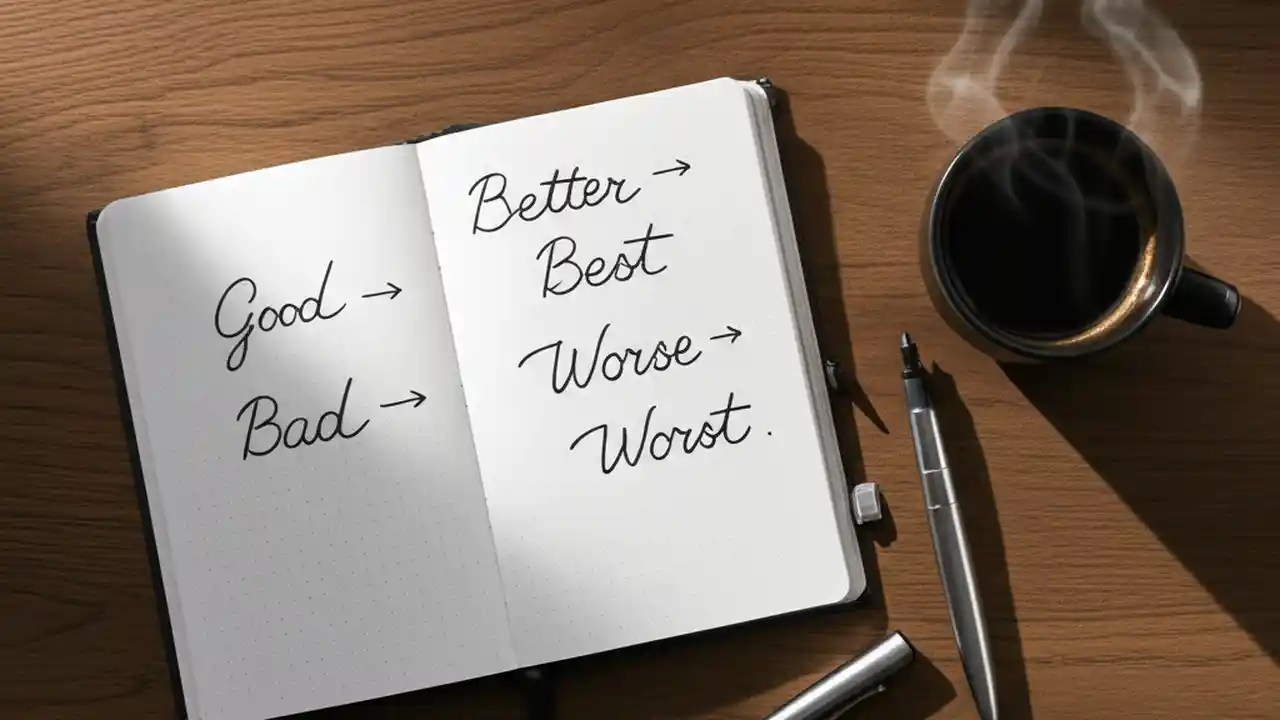 Good →
Bad →
Better →
Best
Worse →
Worst.